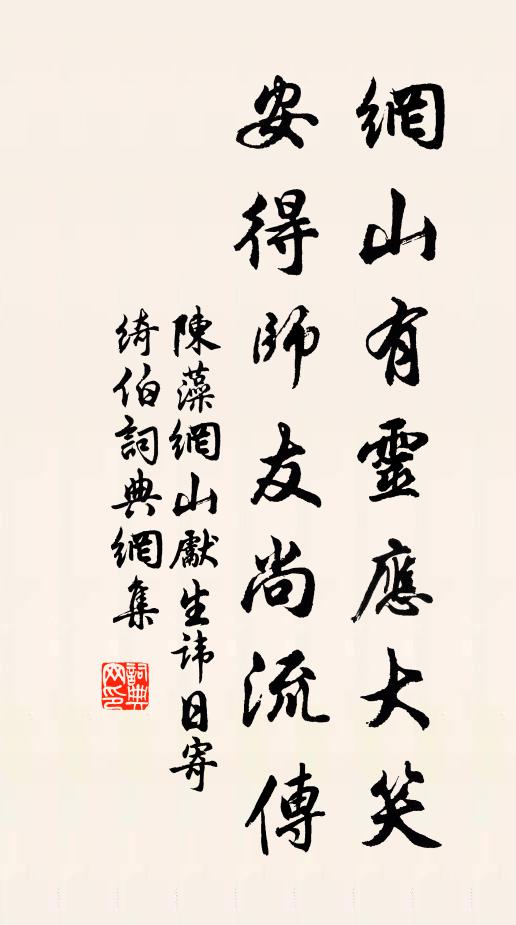 網山有靈應大笑
安得師友尚流傳
陳藻網山獻生諱日寄
綺伯詞典網集
詞典网印